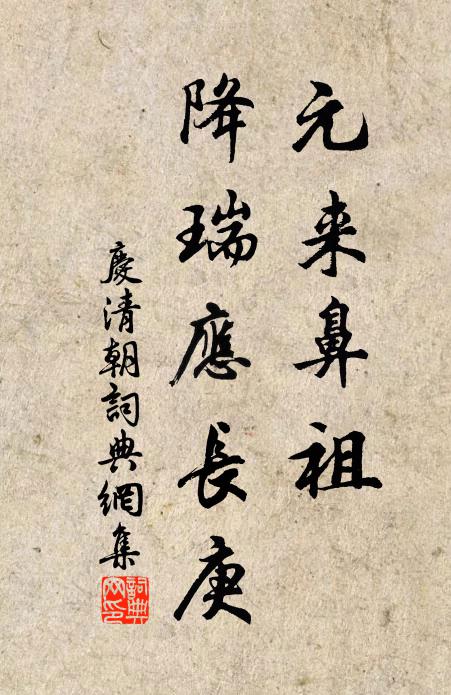 元来鼻祖
降瑞應長庚
慶清朝詞典網集
詞典